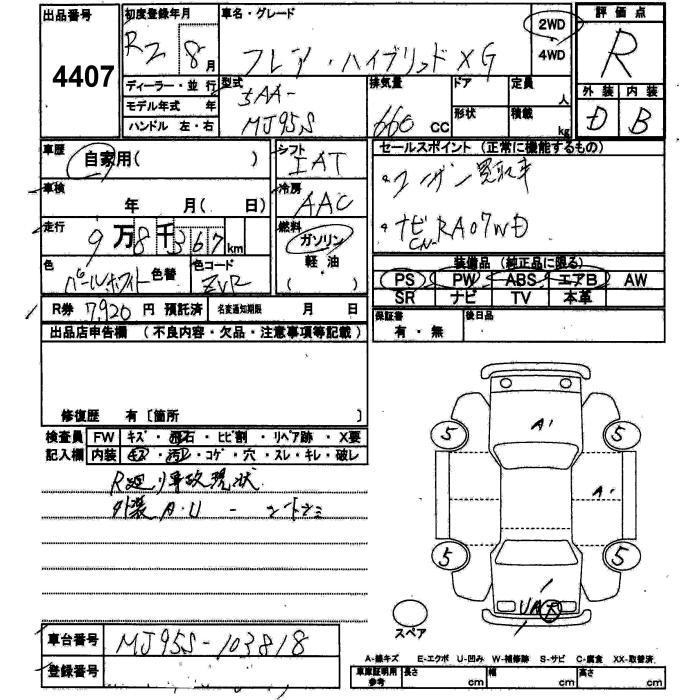 出品番号
4407
初度登録年月
R2 8月
車名・グレード
フレア・ハイブリッドXG
2WD
4WD
評価点
R
外装 内装
D B
ディーラー・並行
モデル年式 年
ハンドル 左・右
型式
5AA-
MJ95S
排気量
660 CC
ドア
形状
定員 人
積載 kg
車歴
自家用( )
車検
年 月( 日)
走行
9万8千367km
色
パールホワイト 色替
色コード
ZVR
シフト
IAT
冷房
AAC
燃料
ガソリン
軽油
( )
セールスポイント (正常に機能するもの)
・ユーザー買取車
・ナビ CN-RA07WD
装備品 (純正品に限る)
PS PW ABS エアB AW
SR ナビ TV 本革
R券 7,920 円 預託済
名変通知期限 月 日
保証書
有・無
後日品
出品店申告欄 (不良内容・欠品・注意事項等記載)
修復歴 有〔箇所 〕
検査員
記入欄
FW キズ・飛石・ヒビ割・リペア跡・X要
内装 キズ・汚レ・コゲ・穴・スレ・キレ・破レ
R廻り事故現状
外装 A・U
A1
A1
5 5
5 5
UA
スペア
車台番号 MJ95S-103818
登録番号
A-線キズ E-エクボ U-凹み W-補修跡 S-サビ C-腐食 XX-取替済
車庫証明用
参考
長さ cm 幅 cm 高さ cm